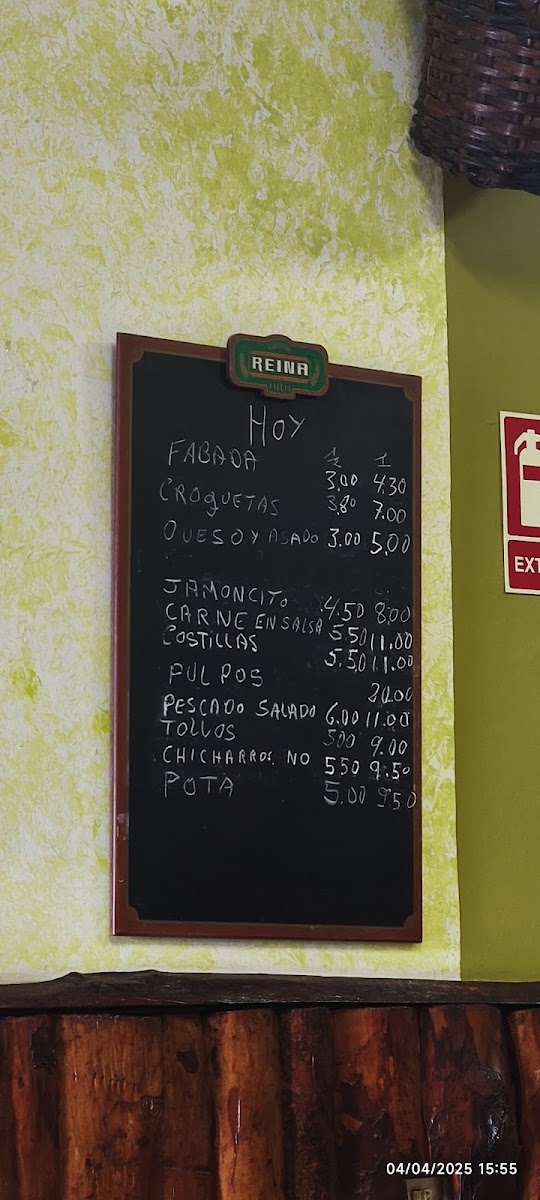 REINA
HOY
½ 1
FABADA 3.00 4.30
CROQUETAS 3.80 7.00
QUESOYASADO 3.00 5,00
JAMONCITO 4.50 8.00
CARNE EN SALSA 5.50 11.00
COSTILLAS 5.50 11.00
PULPOS 20.00
PESCADO SALADO 6.00 11.00
TOLLOS 500 9.00
CHICHARROS NO 550 9.50
POTA 5.00 9.50
EXT
04/04/2025 15:55